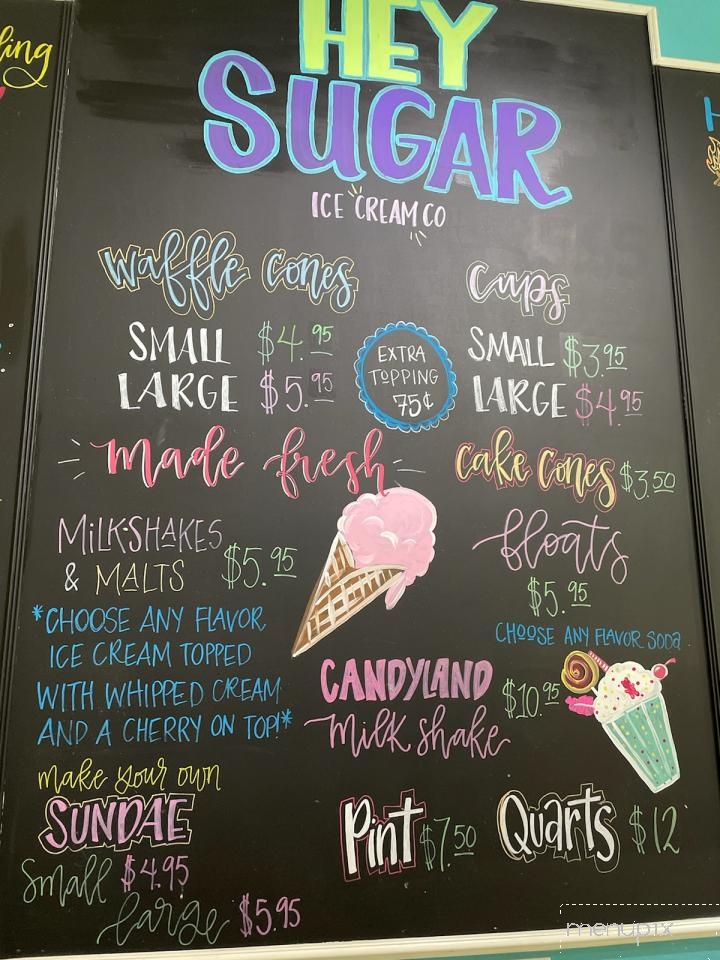 ling
HEY
SUGAR
ICE CREAM CO
waffle cones
SMALL $4.95
LARGE $5.95
EXTRA
TOPPING
75¢
cups
SMALL $3.95
LARGE $4.95
made fresh
cake cones $3.50
MILK-SHAKES
& MALTS $5.95
floats
$5.95
CHOOSE ANY FLAVOR SODA
*CHOOSE ANY FLAVOR
ICE CREAM TOPPED
WITH WHIPPED CREAM
AND A CHERRY ON TOP!*
CANDYLAND
milk shake $10.95
make your own
SUNDAE
small $4.95
large $5.95
Pint $7.50
Quarts $12
H
menupix